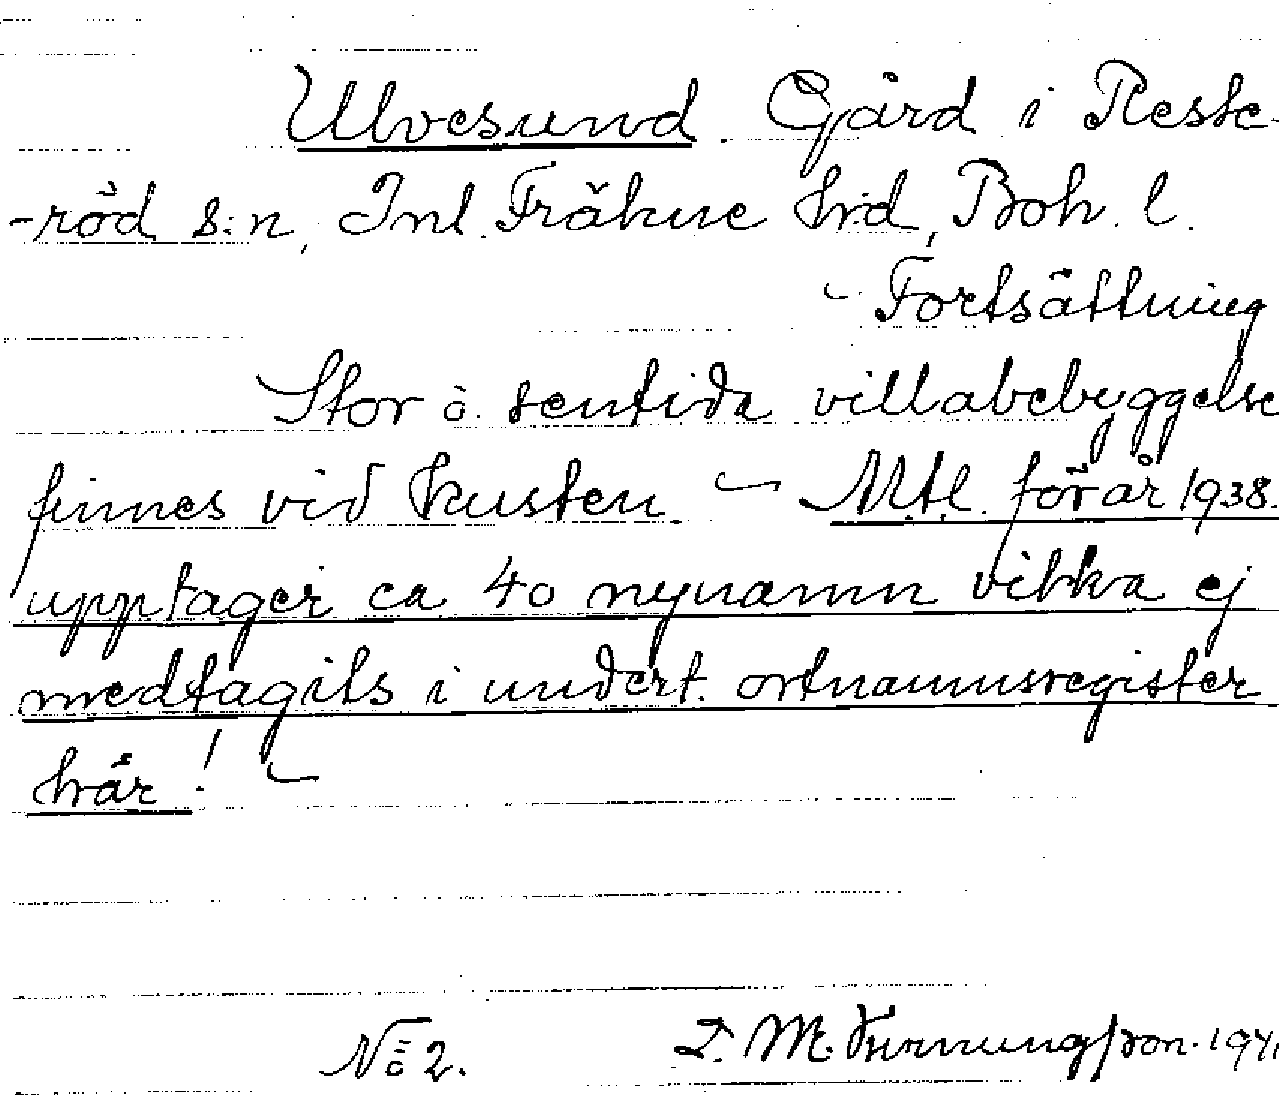 Ulvesund. Gård i Reste-
-röd s:n, Inl. Fräkne hrd, Boh. l.
- Fortsättning
Stor o. sentida villabebyggelse
finnes vid kusten. - Mtl. för år 1938.
upptager ca 40 nynamn vilka ej
medtagits i undert. ortnamnsregister
här! -
No 2. D. M. 1941